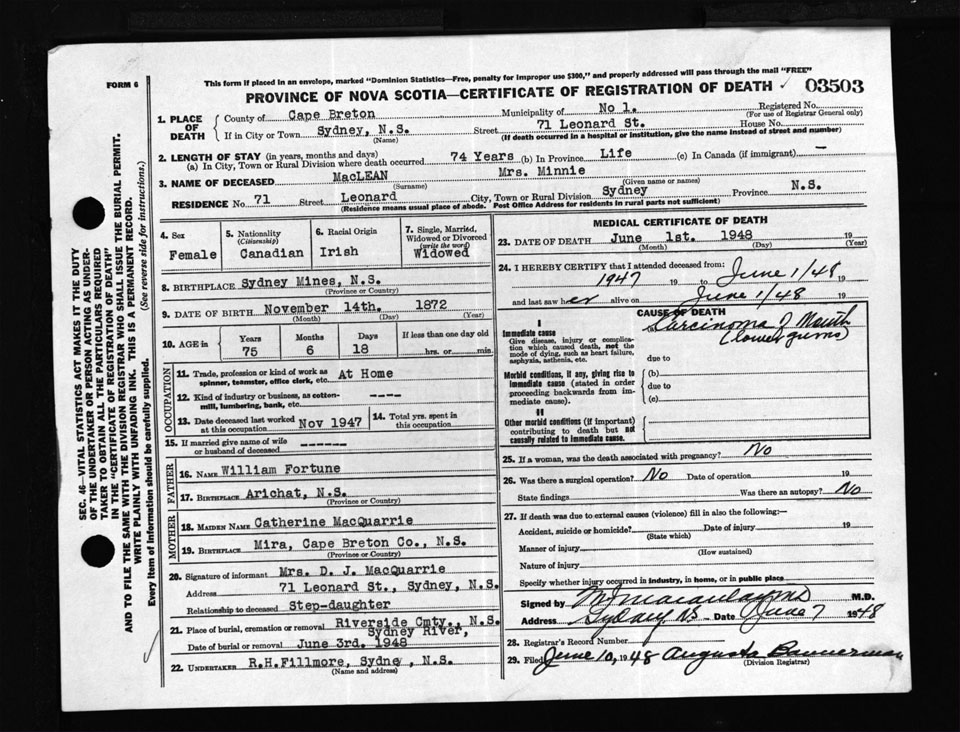 This form if placed in an envelope, marked "Dominion Statistics—Free, penalty for improper use $300," and properly addressed will pass through the mail "FREE"
FORM 6
PROVINCE OF NOVA SCOTIA—CERTIFICATE OF REGISTRATION OF DEATH ✓ 03503
1. PLACE OF DEATH
County of Cape Breton Municipality of No 1. Registered No.
(For use of Registrar General only)
If in City or Town Sydney, N.S. Street 71 Leonard St. House No.
(Name) (If death occurred in a hospital or institution, give the name instead of street and number)
2. LENGTH OF STAY (in years, months and days)
(a) In City, Town or Rural Division where death occurred 74 Years (b) In Province Life (c) In Canada (if immigrant) —
3. NAME OF DECEASED MacLEAN Mrs. Minnie
(Surname) (Given name or names)
RESIDENCE No. 71 Street Leonard City, Town or Rural Division Sydney Province N.S.
(Residence means usual place of abode. Post Office Address for residents in rural parts not sufficient)
4. Sex
Female
5. Nationality
(Citizenship)
Canadian
6. Racial Origin
Irish
7. Single, Married, Widowed or Divorced
(write the word)
Widowed
8. BIRTHPLACE Sydney Mines, N.S.
(Province or Country)
9. DATE OF BIRTH November 14th. 1872
(Month) (Day) (Year)
10. AGE in
Years Months Days If less than one day old
75 6 18 hrs. or min.
OCCUPATION
11. Trade, profession or kind of work as spinner, teamster, office clerk, etc. At Home
12. Kind of industry or business, as cotton-mill, lumbering, bank, etc. ----
13. Date deceased last worked at this occupation Nov 1947
14. Total yrs. spent in this occupation
15. If married give name of wife or husband of deceased -------
FATHER
16. NAME William Fortune
17. BIRTHPLACE Arichat, N.S.
(Province or Country)
MOTHER
18. MAIDEN NAME Catherine MacQuarrie
19. BIRTHPLACE Mira, Cape Breton Co., N.S.
(Province or Country)
20. Signature of informant Mrs. D. J. MacQuarrie
Address 71 Leonard St., Sydney, N.S.
Relationship to deceased Step-daughter
21. Place of burial, cremation or removal Riverside Cmty., N.S.
Sydney River,
Date of burial or removal June 3rd. 1948
22. UNDERTAKER R.H.Fillmore, Sydney, N.S.
(Name and address)
MEDICAL CERTIFICATE OF DEATH
23. DATE OF DEATH June 1st. 1948 19
(Month) (Day) (Year)
24. I HEREBY CERTIFY that I attended deceased from:
1947 19 to June 1/48 19
and last saw her alive on June 1/48 19
CAUSE OF DEATH
I
Immediate cause
Give disease, injury or complication which caused death, not the mode of dying, such as heart failure, asphyxia, asthenia, etc.
(a) Carcinoma of Mouth
(lower gums)
due to
Morbid conditions, if any, giving rise to immediate cause (stated in order proceeding backwards from immediate cause).
(b)
due to
(c)
II
Other morbid conditions (if important) contributing to death but not causally related to immediate cause.
25. If a woman, was the death associated with pregnancy? No
26. Was there a surgical operation? No Date of operation 19
State findings Was there an autopsy? No
27. If death was due to external causes (violence) fill in also the following:—
Accident, suicide or homicide? Date of injury 19
(State which)
Manner of injury
(How sustained)
Nature of injury
Specify whether injury occurred in industry, in home, or in public place
Signed by M.D.
Address Sydney NS Date June 7 1948
28. Registrar's Record Number
29. Filed June 10, 1948 Augusta Bannerman
(Division Registrar)
SEC. 46—VITAL STATISTICS ACT MAKES IT THE DUTY
OF THE UNDERTAKER OR PERSON ACTING AS UNDER-
TAKER TO OBTAIN ALL THE PARTICULARS REQUIRED
IN THE "CERTIFICATE OF REGISTRATION OF DEATH"
AND TO FILE THE SAME WITH THE DIVISION REGISTRAR WHO SHALL ISSUE THE BURIAL PERMIT.
WRITE PLAINLY WITH UNFADING INK. THIS IS A PERMANENT RECORD.
Every item of information should be carefully supplied. (See reverse side for instructions.)